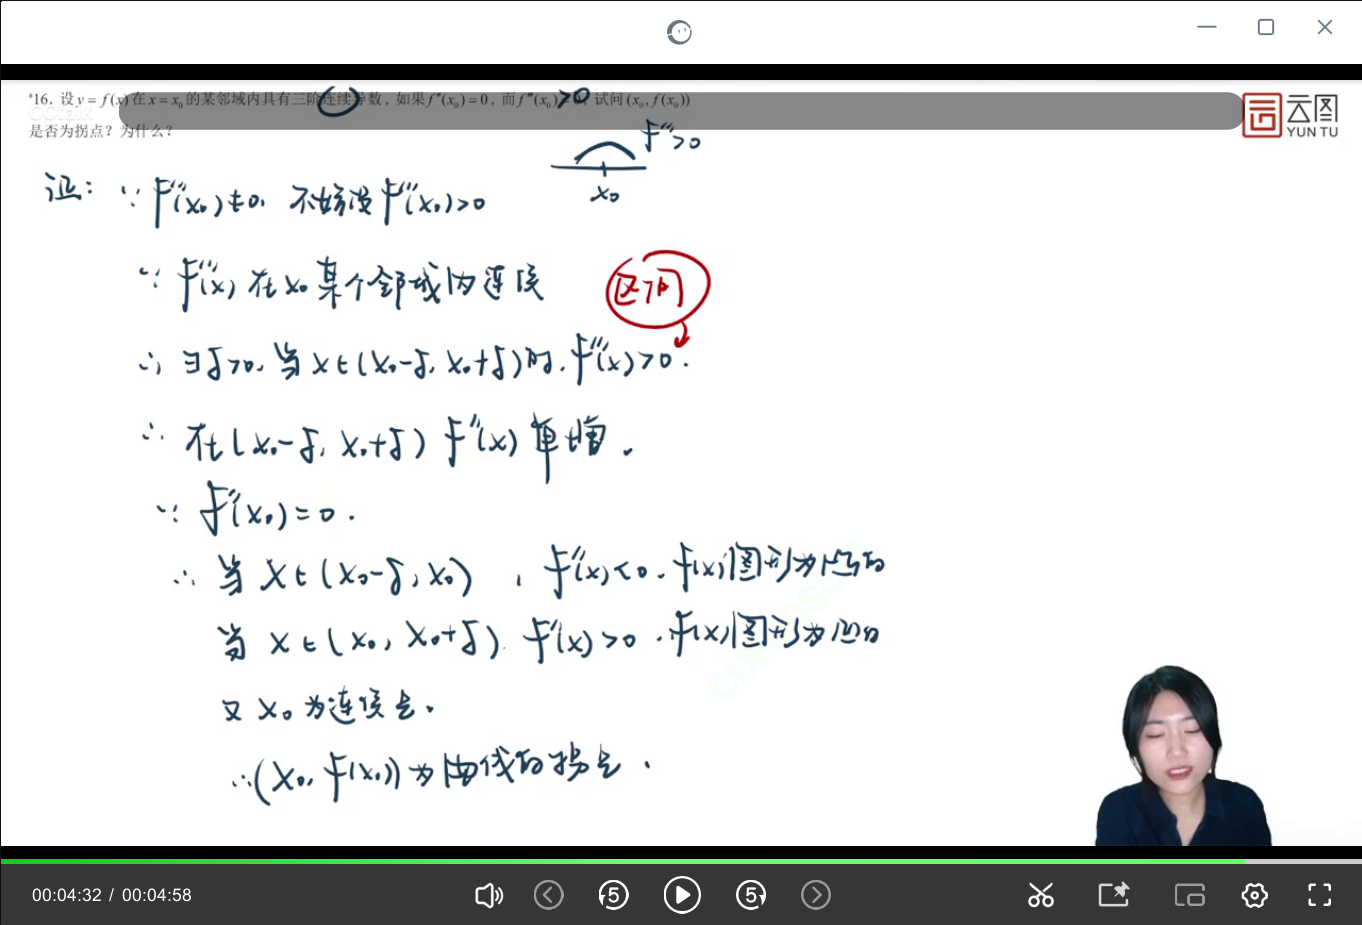 *16. 设 y = f(x) 在 x = x₀ 的某邻域内具有三阶连续导数, 如果 f''(x₀) = 0, 而 f'''(x₀) >0, 试问 (x₀, f(x₀))
是否为拐点? 为什么?
云图
YUN TU
f'''>0
x₀
证: ∵ f'''(x₀)≠0. 不妨设 f'''(x₀)>0
∵ f'''(x) 在 x₀ 某个邻域内连续
区间
∴ ∃δ>0. 当 x∈(x₀-δ, x₀+δ)时. f'''(x)>0.
∴ 在(x₀-δ, x₀+δ) f''(x) 单增.
∵ f''(x₀)=0.
∴ 当 x∈(x₀-δ, x₀), f''(x)<0. f(x)图形为凸的
当 x∈(x₀, x₀+δ). f''(x)>0. f(x)图形为凹的
又 x₀ 为连续点.
∴(x₀, f(x₀))为曲线的拐点.
00:04:32 / 00:04:58
5
5